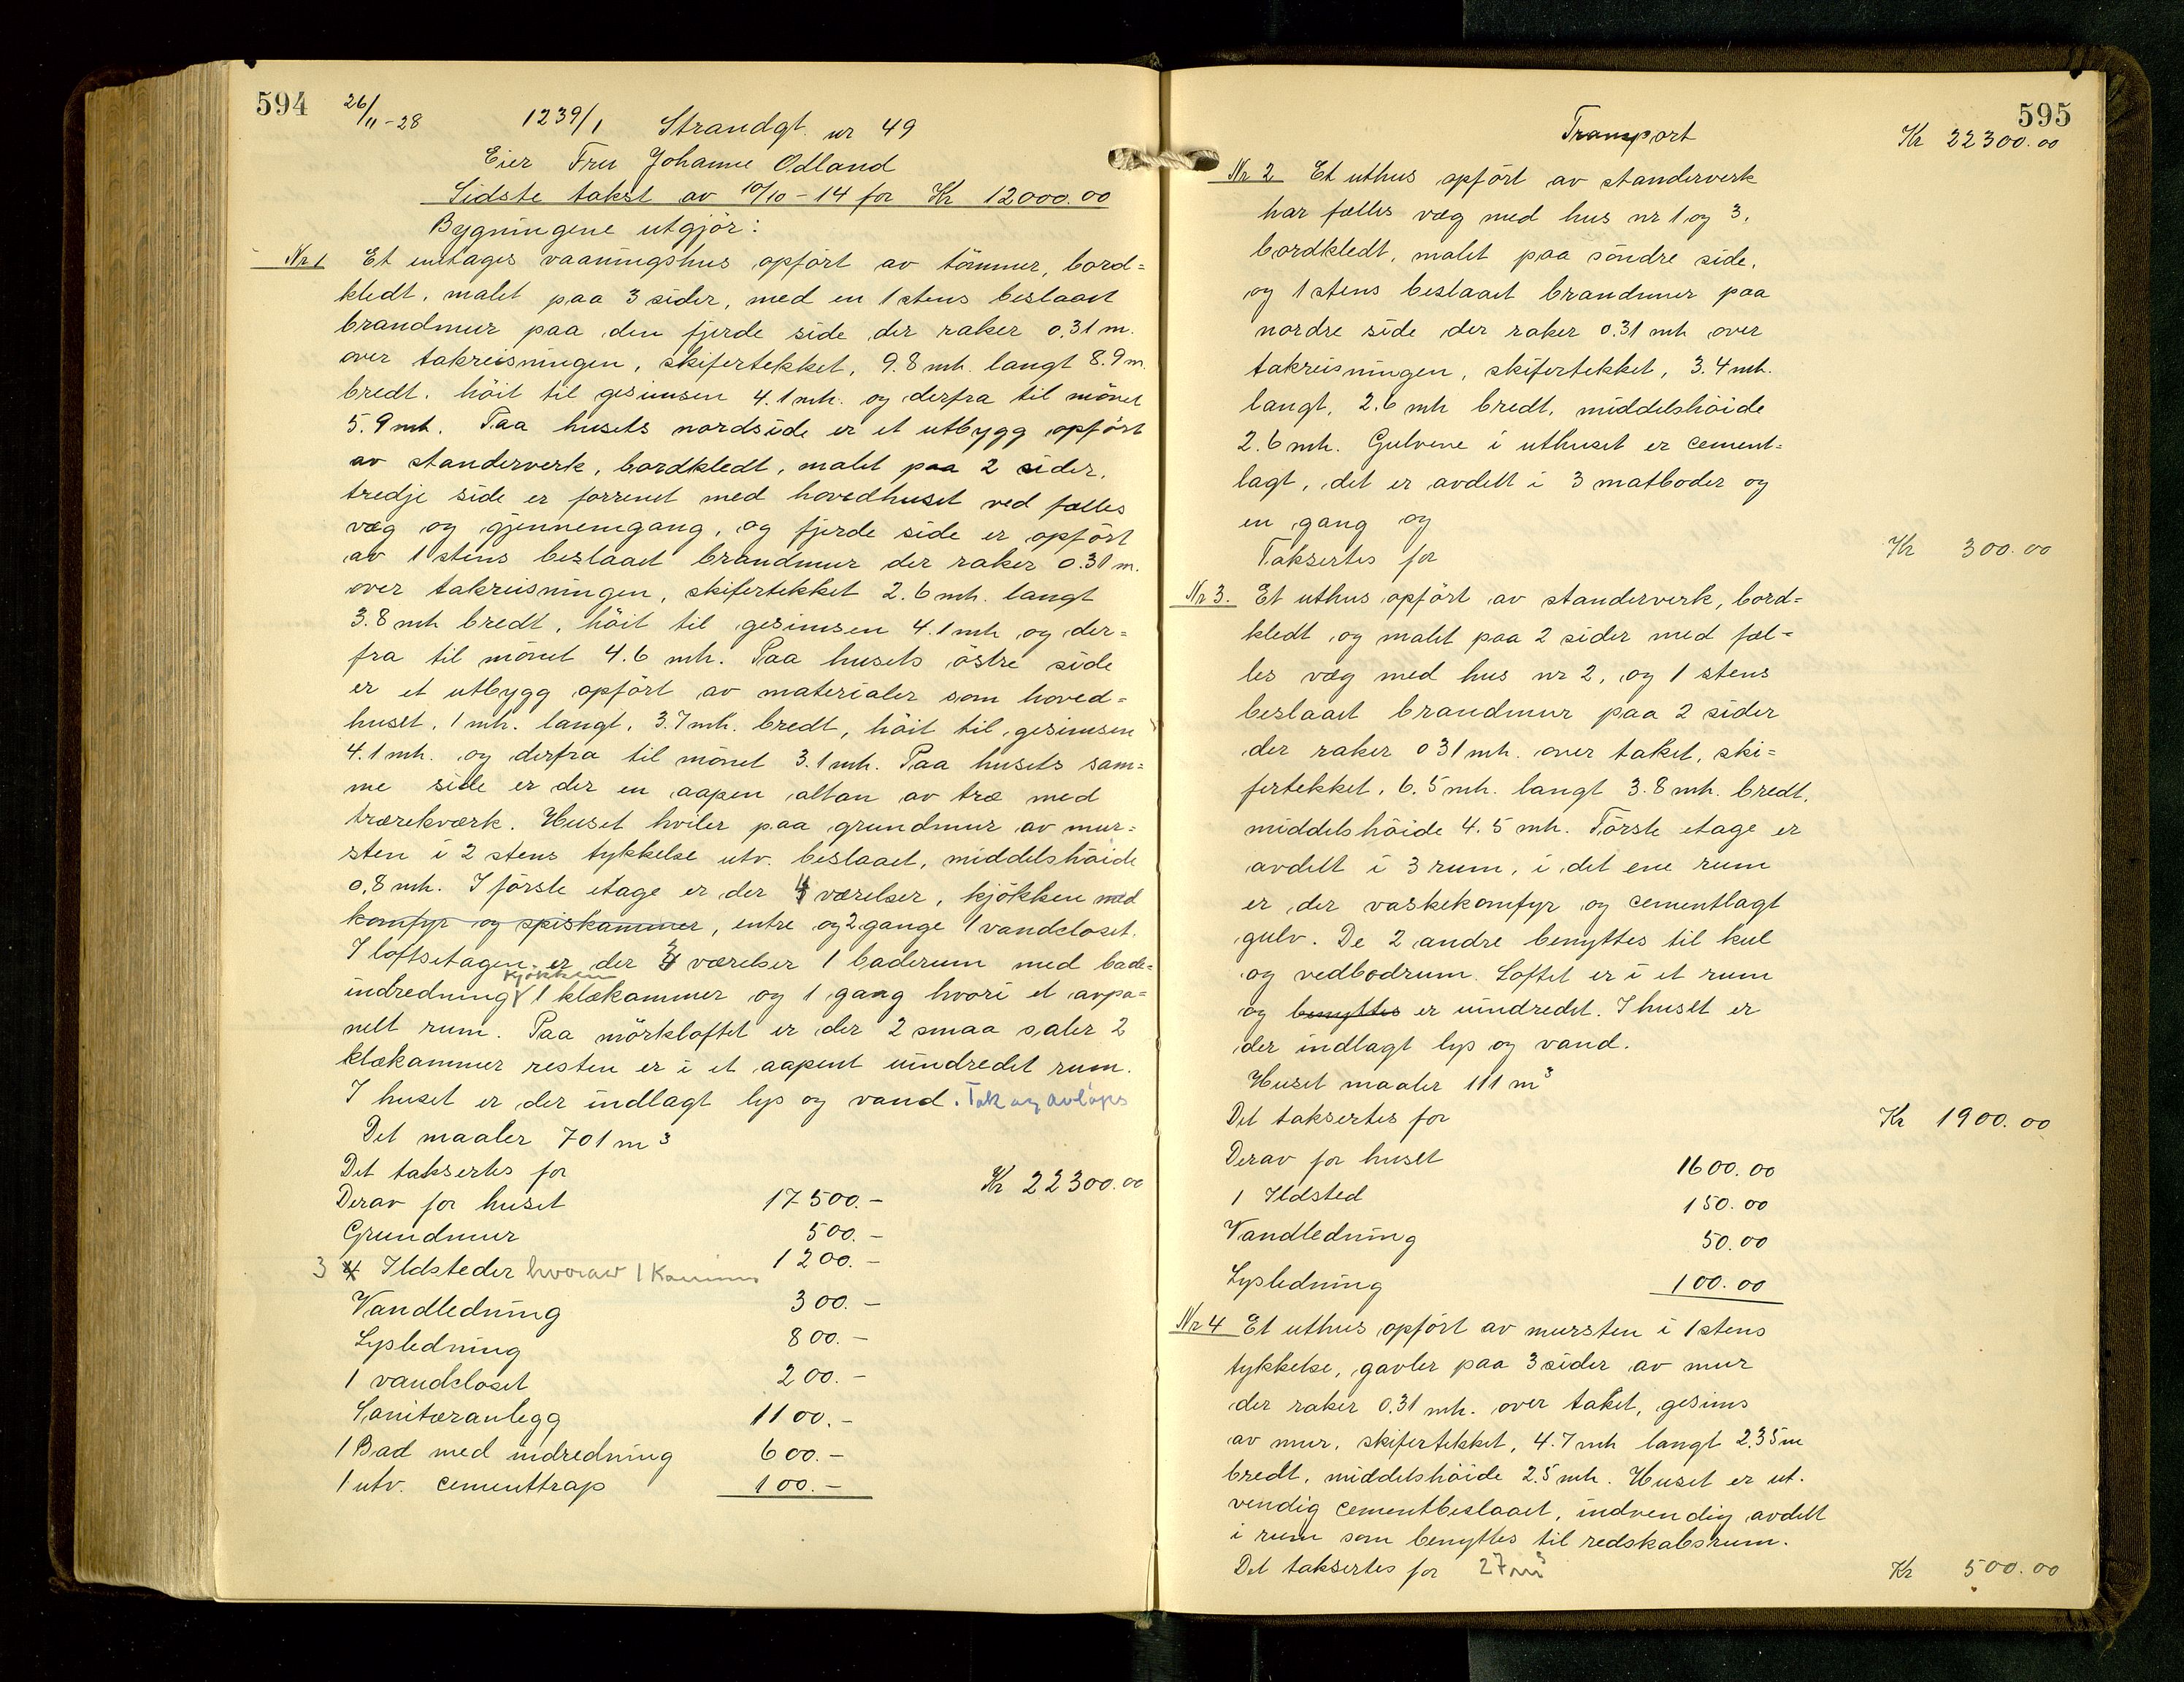 594
26/11-28 1239/1 Strandgt. nr 49
Eier Fru Johanne Odland
Sidste takst av 10/10-14 for Kr 12000.00
Bygningene utgjör:
Nr 1 Et entages vaaningshus opfört av tömmer, bord=
kledt, malet paa 3 sider, med en 1 stens beslaaet
brandmur paa den fjerde side der raker 0.31 m.
over takreisningen, skifertekket, 9.8 mtr. langt 8.9 m
bredt. höit til gesimsen 4.1 mtr. og derfra til mönet
5.9 mtr. Paa husets nordside er et utbygg opfört
av standerverk, bordkledt, malet paa 2 sider,
tredje side er forrenet med hovedhuset ved fælles
væg og gjennemgang, og fjerde side er opfört
av 1 stens beslaaet brandmur der raker 0.31 m.
over takreisningen, skifertekket 2.6 mtr. langt
3.8 mtr bredt, höit til gesimsen 4.1 mtr og der=
fra til mönet 4.6 mtr. Paa husets östre side
er et utbygg opfört av materialer som hoved=
huset, 1 mtr. langt, 3.7 mtr. bredt, höit til gesimsen
4.1 mtr. og derfra til mönet 3.1 mtr. Paa husets sam=
me side er der en aapen altan av træ med
trærekværk. Huset hviler paa grundmur av mur=
sten i 2 stens tykkelse utv. beslaaet, middelshöide
0,8 mtr. I förste etage er der 4 værelser, kjökken med
komfyr og spiskammer, entre og 2 gange 1 vandcloset.
I loftsetagen er der 3 værelser 1 baderum med bade=
kjökken
indredning 1 klækammer og 1 gang hvori et avpa=
nelt rum. Paa mörkloftet er der 2 smaa saler 2
klækammer resten er i et aapent uindredet rum.
I huset er der indlagt lys og vand. Tak og avlöps
Det maaler 701 m3
Det taksertes for Kr 22300.00
Derav for huset 17500.-
Grundmur 500.-
3 4 Ildsteder hvorav 1 Kamin 1200.-
Vandledning 300.-
Lysledning 800.-
1 vandcloset 200.-
Sanitæranlegg 1100.-
1 Bad med indredning 600.-
1 utv. cementtrap 100.-
595
Transport Kr 22300.00
Nr 2 Et uthus opfört av standerverk
har fælles væg med hus nr 1 og 3,
bordkledt, malet paa söndre side,
og 1 stens beslaaet brandmur paa
nordre side der raker 0.31 mtr over
takreisningen, skifertekket, 3.4 mtr.
langt, 2.6 mtr bredt, middelshöide
2.6 mtr. Gulvene i uthuset er cement=
lagt, det er avdelt i 3 matboder og
en gang og
Taksertes for Kr 300.00
Nr 3. Et uthus opfört av standerverk, bord=
kledt og malet paa 2 sider med fæl=
les væg med hus nr 2, og 1 stens
beslaaet brandmur paa 2 sider
der raker 0 31 mtr. over taket, ski=
fertekket, 6.5 mtr. langt 3.8 mtr. bredt,
middelshöide 4.5 mtr. Förste etage er
avdelt i 3 rum, i det ene rum
er der vaskekomfyr og cementlagt
gulv. De 2 andre benyttes til kul
og vedbodrum. Loftet er i et rum
og benyttes er uindredet. I huset er
der indlagt lys og vand.
Huset maaler 111 m3
Det taksertes for Kr 1900.00
Derav for huset 1600.00
1 Ildsted 150.00
Vandledning 50.00
Lysledning 100.00
Nr 4 Et uthus opfört av mursten i 1 stens
tykkelse, gavler paa 3 sider av mur
der raker 0.31 mtr. over taket, gesims
av mur, skifertekket, 4.7 mtr langt 2.35 m
bredt, middelshöide 2.5 mtr. Huset er ut-
vendig cementbeslaaet, indvendig avdelt
i rum som benyttes til redskabsrum.
Det taksertes for 27 m3 Kr 500.00